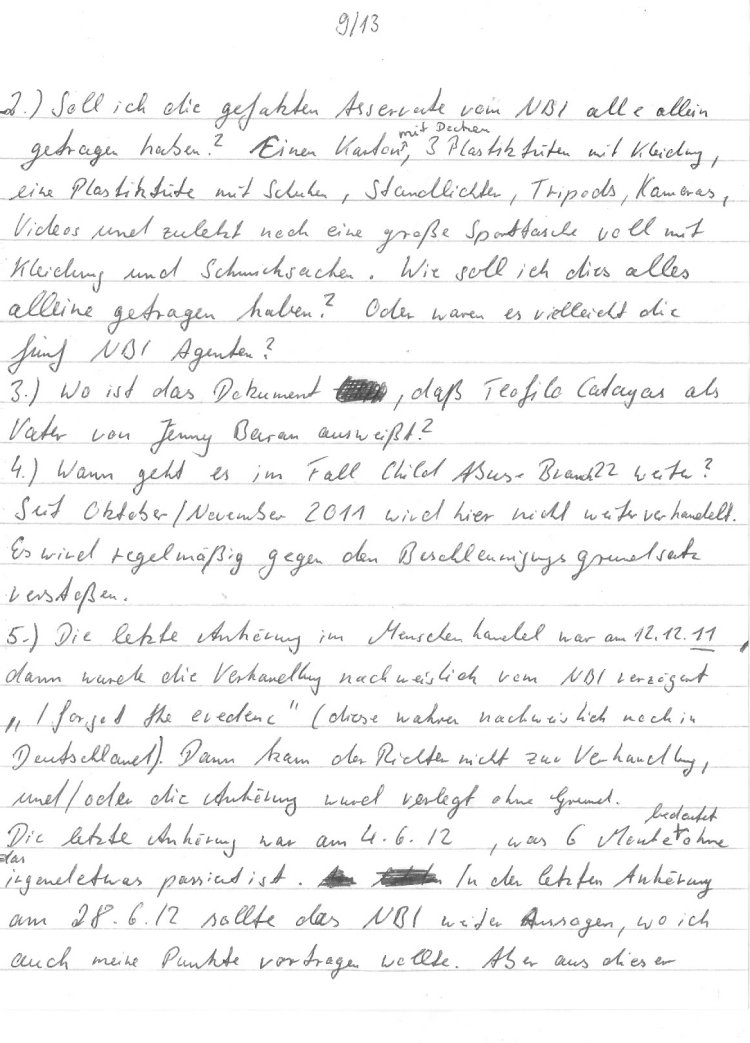 9/13
2.) Soll ich die gefakten Asservate vom NBI alle allein
getragen haben? Einen Karton mit Decken, 3 Plastiktüten mit Kleidung,
eine Plastiktüte mit Schuhen, Standlichter, Tripods, Kameras,
Videos und zuletzt noch eine große Sporttasche voll mit
Kleidung und Schmucksachen. Wie soll ich dies alles
alleine getragen haben? Oder waren es vielleicht die
fünf NBI Agenten?
3.) Wo ist das Dokument, daß Teofilo Catayas als
Vater von Jenny Beiran ausweißt?
4.) Wann geht es im Fall Child Abuse Branch 22 weiter?
Seit Oktober/November 2011 wird hier nicht weiterverhandelt.
Es wird regelmäßig gegen den Beschleunigungsgrundsatz
verstoßen.
5.) Die letzte Anhörung im Menschenhandel war am 12.12.11,
dann wurde die Verhandlung nachweislich vom NBI verzögert
„I forget the evedenc" (diese wahren nachweislich noch in
Deutschland). Dann kam der Richter nicht zur Verhandlung,
und/oder die Anhörung wurd verlegt ohne Grund.
Die letzte Anhörung war am 4.6.12, was 6 Monate bedeutet ohne
das irgendetwas passiert ist. In der letzten Anhörung
am 28.6.12 sollte das NBI weiter Aussagen, wo ich
auch meine Punkte vortragen wollte. Aber aus dieser